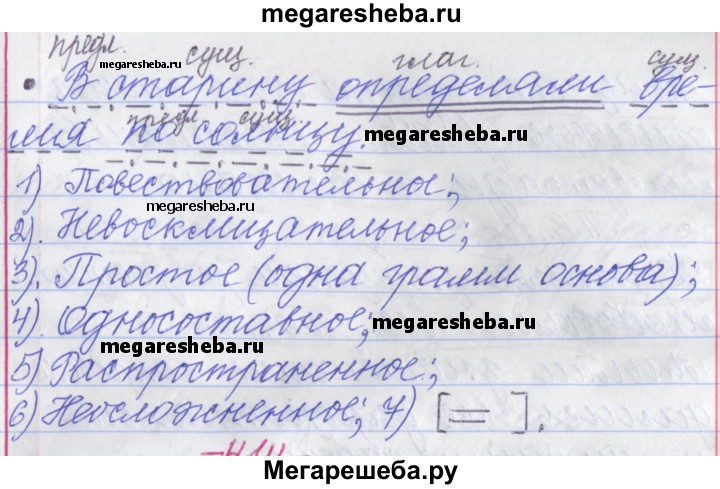 megaresheba.ru
предл. сущ. глаг. сущ.
megaresheba.ru
• В старину определяли вре-
предл сущ.
мя по солнцу. megaresheba.ru
1) Повествовательное;
megaresheba.ru
2). Невосклицательное;
3). Простое (одна грамм основа);
4). Односоставное; megaresheba.ru
megaresheba.ru
5) Распространенное;
6) Неосложненное; 7) [ ═ ].
Мегарешеба.ру